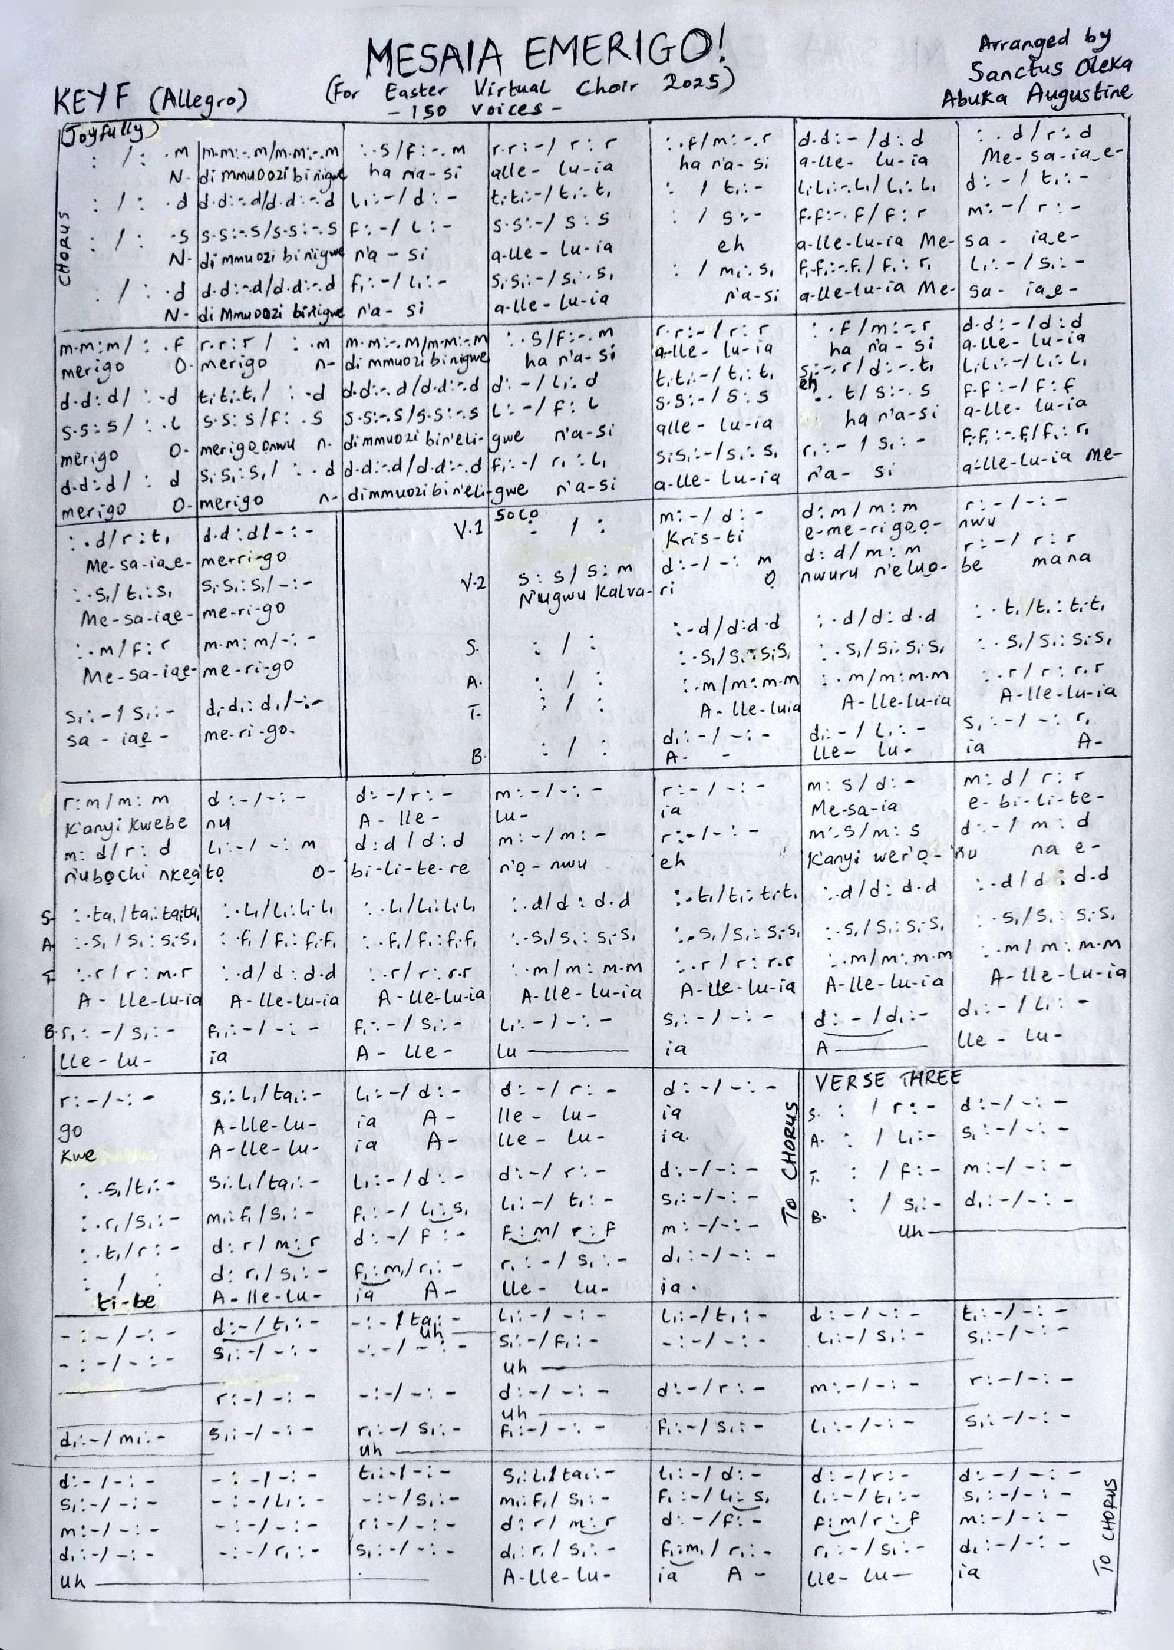 MESAIA EMERIGO!
(For Easter Virtual Choir 2025)
- 150 Voices -
Arranged by
Sanctus Oleka
Abuka Augustine
KEY F (Allegro)
(Joyfully)
CHORUS
: / : . m | m.m:-.m/m.m:-.m | :.s/f:-.m | r.r:-/r:r | :.f/m:-.r | d.d:-/d:d | :.d/r:d
N- | di mmuozi binigwe | ha n'a-si | alle-lu-ia | ha n'a-si | a-lle-lu-ia | Me-sa-ia_e-
: / : . d | d.d:-d/d.d:-.d | l₁:-/d:- | t₁.t₁:-/t₁:t₁ | : / t₁:- | l₁.l₁:-.l₁/l₁:l₁ | d:-/t₁:-
: / : .s | s.s:-.s/s.s:-.s | f:-/l:- | s.s:-/s:s | : / s:- | f.f:-.f/f:r | m:-/r:-
N- | di mmuozi binigwe | n'a-si | a-lle-lu-ia | eh | a-lle-lu-ia Me- | sa-ia_e-
: / : .d | d.d:-d/d.d:-.d | f₁:-/l₁:- | s₁.s₁:-/s₁:s₁ | : / m₁:s₁ | f₁.f₁:-.f₁/f₁:r₁ | l₁:-/s₁:-
N- | di mmuozi binigwe | n'a-si | a-lle-lu-ia | n'a-si | a-lle-lu-ia Me- | sa-ia_e-
m.m:m/ : .f | r.r:r/ : .m | m.m:-.m/m.m:-.m | :.s/f:-.m | r.r:-/r:r | :.f/m:-.r | d.d:-/d:d
merigo O- | merigo n- | di mmuozi binigwe | ha n'a-si | a-lle-lu-ia | ha n'a-si | a-lle-lu-ia
d.d:d/ : .d | t₁.t₁:t₁/ : .d | d.d:-.d/d.d:-.d | d:-/l₁:d | t₁.t₁:-/t₁:t₁ | s₁:-.r/d:-.t₁ | l₁.l₁:-/l₁:l₁
eh
s.s:s/ : .l | s.s:s/f: .s | s.s:-.s/s.s:-.s | l:-/f:l | s.s:-/s:s | :.t/s:-.s | f.f:-/f:f
merigo O- | merigo onwu n- | di mmuozi bin'eli- | gwe n'a-si | alle-lu-ia | ha n'a-si | a-lle-lu-ia
d.d:d/ : d | s₁.s₁:s₁/ : .d | d.d:-d/d.d:-.d | f₁:-/r₁:l₁ | s₁.s₁:-/s₁:s₁ | r₁:-/s₁:- | f₁.f₁:-.f₁/f₁:r₁
merigo O- | merigo n- | di mmuozi bin'eli- | gwe n'a-si | a-lle-lu-ia | n'a-si | a-lle-lu-ia Me-
:.d/r:t₁ | d.d:d/-:- | V.1 | SOLO : / : | m:-/d:- | d:m/m:m | r:-/-:-
Me-sa-ia_e- | merri-go | Kris-ti | e-me-rigo_o- | nwu
V.2 | s:s/s:m | d:-/-:m | d:d/m:m | r:-/r:r
N'ugwu Kalva- | ri O | nwuru n'elu_o- | be mana
:.s₁/t₁:s₁ | s₁.s₁:s₁/-:-
Me-sa-iae- | me-ri-go
S. | : / : | :.d/d:d.d | :.d/d:d.d | :.t₁/t₁:t₁.t₁
A. | : / : | :.s₁/s₁:s₁.s₁ | :.s₁/s₁:s₁.s₁ | :.s₁/s₁:s₁.s₁
:.m/f:r | m.m:m/-:-
Me-sa-iae- | me-ri-go
T. | : / : | :.m/m:m.m | :.m/m:m.m | :.r/r:r.r
A-lle-luia | A-lle-lu-ia | A-lle-lu-ia
s₁:-/s₁:- | d₁.d₁:d₁/-:-
sa-iae- | me-ri-go-
B. | : / : | d₁:-/-:- | d₁:-/l₁:- | s₁:-/-:r₁
A- - | lle-lu- | ia A-
r:m/m:m | d:-/-:- | d:-/r:- | m:-/-:- | r:-/-:- | m:s/d:- | m:d/r:r
Kanyi kwebe | nu | A-lle- | lu- | ia | Me-sa-ia | e-bi-li-te-
m:d/r:d | l₁:-/-:m | d:d/d:d | m:-/m:- | r:-/-:- | m:s/m:s | d:-/m:d
n'ubochi nkeato | O- | bi-li-te-re | n'o-nwu | eh | Kanyi wer'o- | nu na e-
S- | :.ta₁/ta₁:ta₁.ta₁ | :.l₁/l₁:l₁.l₁ | :.l₁/l₁:l₁.l₁ | :.d/d:d.d | :.t₁/t₁:t₁.t₁ | :.d/d:d.d | :.d/d:d.d
A- | :.s₁/s₁:s₁.s₁ | :.f₁/f₁:f₁.f₁ | :.f₁/f₁:f₁.f₁ | :.s₁/s₁:s₁.s₁ | :.s₁/s₁:s₁.s₁ | :.s₁/s₁:s₁.s₁ | :.s₁/s₁:s₁.s₁
T- | :.r/r:m.r | :.d/d:d.d | :.r/r:r.r | :.m/m:m.m | :.r/r:r.r | :.m/m:m.m | :.m/m:m.m
A-lle-lu-ia | A-lle-lu-ia | A-lle-lu-ia | A-lle-lu-ia | A-lle-lu-ia | A-lle-lu-ia | A-lle-lu-ia
B- | s₁:-/s₁:- | f₁:-/-:- | f₁:-/s₁:- | l₁:-/-:- | s₁:-/-:- | d:-/d₁:- | d₁:-/l₁:-
lle-lu- | ia | A-lle- | lu | ia | A | lle-lu-
r:-/-:- | s₁:l₁/ta₁:- | l₁:-/d:- | d:-/r:- | d:-/-:- | TO CHORUS | VERSE THREE
go | A-lle-lu- | ia A- | lle-lu- | ia | S. : / r:- | d:-/-:-
kwe | A-lle-lu- | ia A- | lle-lu- | ia. | A. : / l₁:- | s₁:-/-:-
:.s₁/t₁:- | s₁:l₁/ta₁:- | l₁:-/d:- | d:-/r:- | d:-/-:- | T. : / f:- | m:-/-:-
:.r₁/s₁:- | m₁:f₁/s₁:- | f₁:-/l₁:s₁ | l₁:-/t₁:- | s₁:-/-:- | B. : / s₁:- | d₁:-/-:-
:.t₁/r:- | d:r/m:r | d:-/f:- | f:m/r:f | m:-/-:- | Uh
: / : | d:r₁/s₁:- | f₁:m₁/r₁:- | r₁:-/s₁:- | d₁:-/-:-
ti-be | A-lle-lu- | ia A- | lle-lu- | ia.
-:-/-:- | d:-/t₁:- | -:-/ta₁:- | l₁:-/-:- | l₁:-/t₁:- | d:-/-:- | t₁:-/-:-
Uh
-:-/-:- | s₁:-/-:- | -:-/-:- | s₁:-/f₁:- | -:-/-:- | l₁:-/s₁:- | s₁:-/-:-
Uh
r:-/-:- | -:-/-:- | d:-/-:- | d:-/r:- | m:-/-:- | r:-/-:-
Uh
d₁:-/m₁:- | s₁:-/-:- | r₁:-/s₁:- | f₁:-/-:- | f₁:-/s₁:- | l₁:-/-:- | s₁:-/-:-
Uh
d:-/-:- | -:-/-:- | t₁:-/-:- | s₁:l₁/ta₁:- | l₁:-/d:- | d:-/r:- | d:-/-:-
s₁:-/-:- | -:-/l₁:- | -:-/s₁:- | m₁:f₁/s₁:- | f₁:-/l₁:s₁ | l₁:-/t₁:- | s₁:-/-:-
m:-/-:- | -:-/-:- | r:-/-:- | d:r/m:r | d:-/f:- | f:m/r:f | m:-/-:-
d₁:-/-:- | -:-/r₁:- | s₁:-/-:- | d₁:r₁/s₁:- | f₁:m₁/r₁:- | r₁:-/s₁:- | d₁:-/-:-
Uh | A-lle-lu- | ia A- | lle-lu- | ia
TO CHORUS